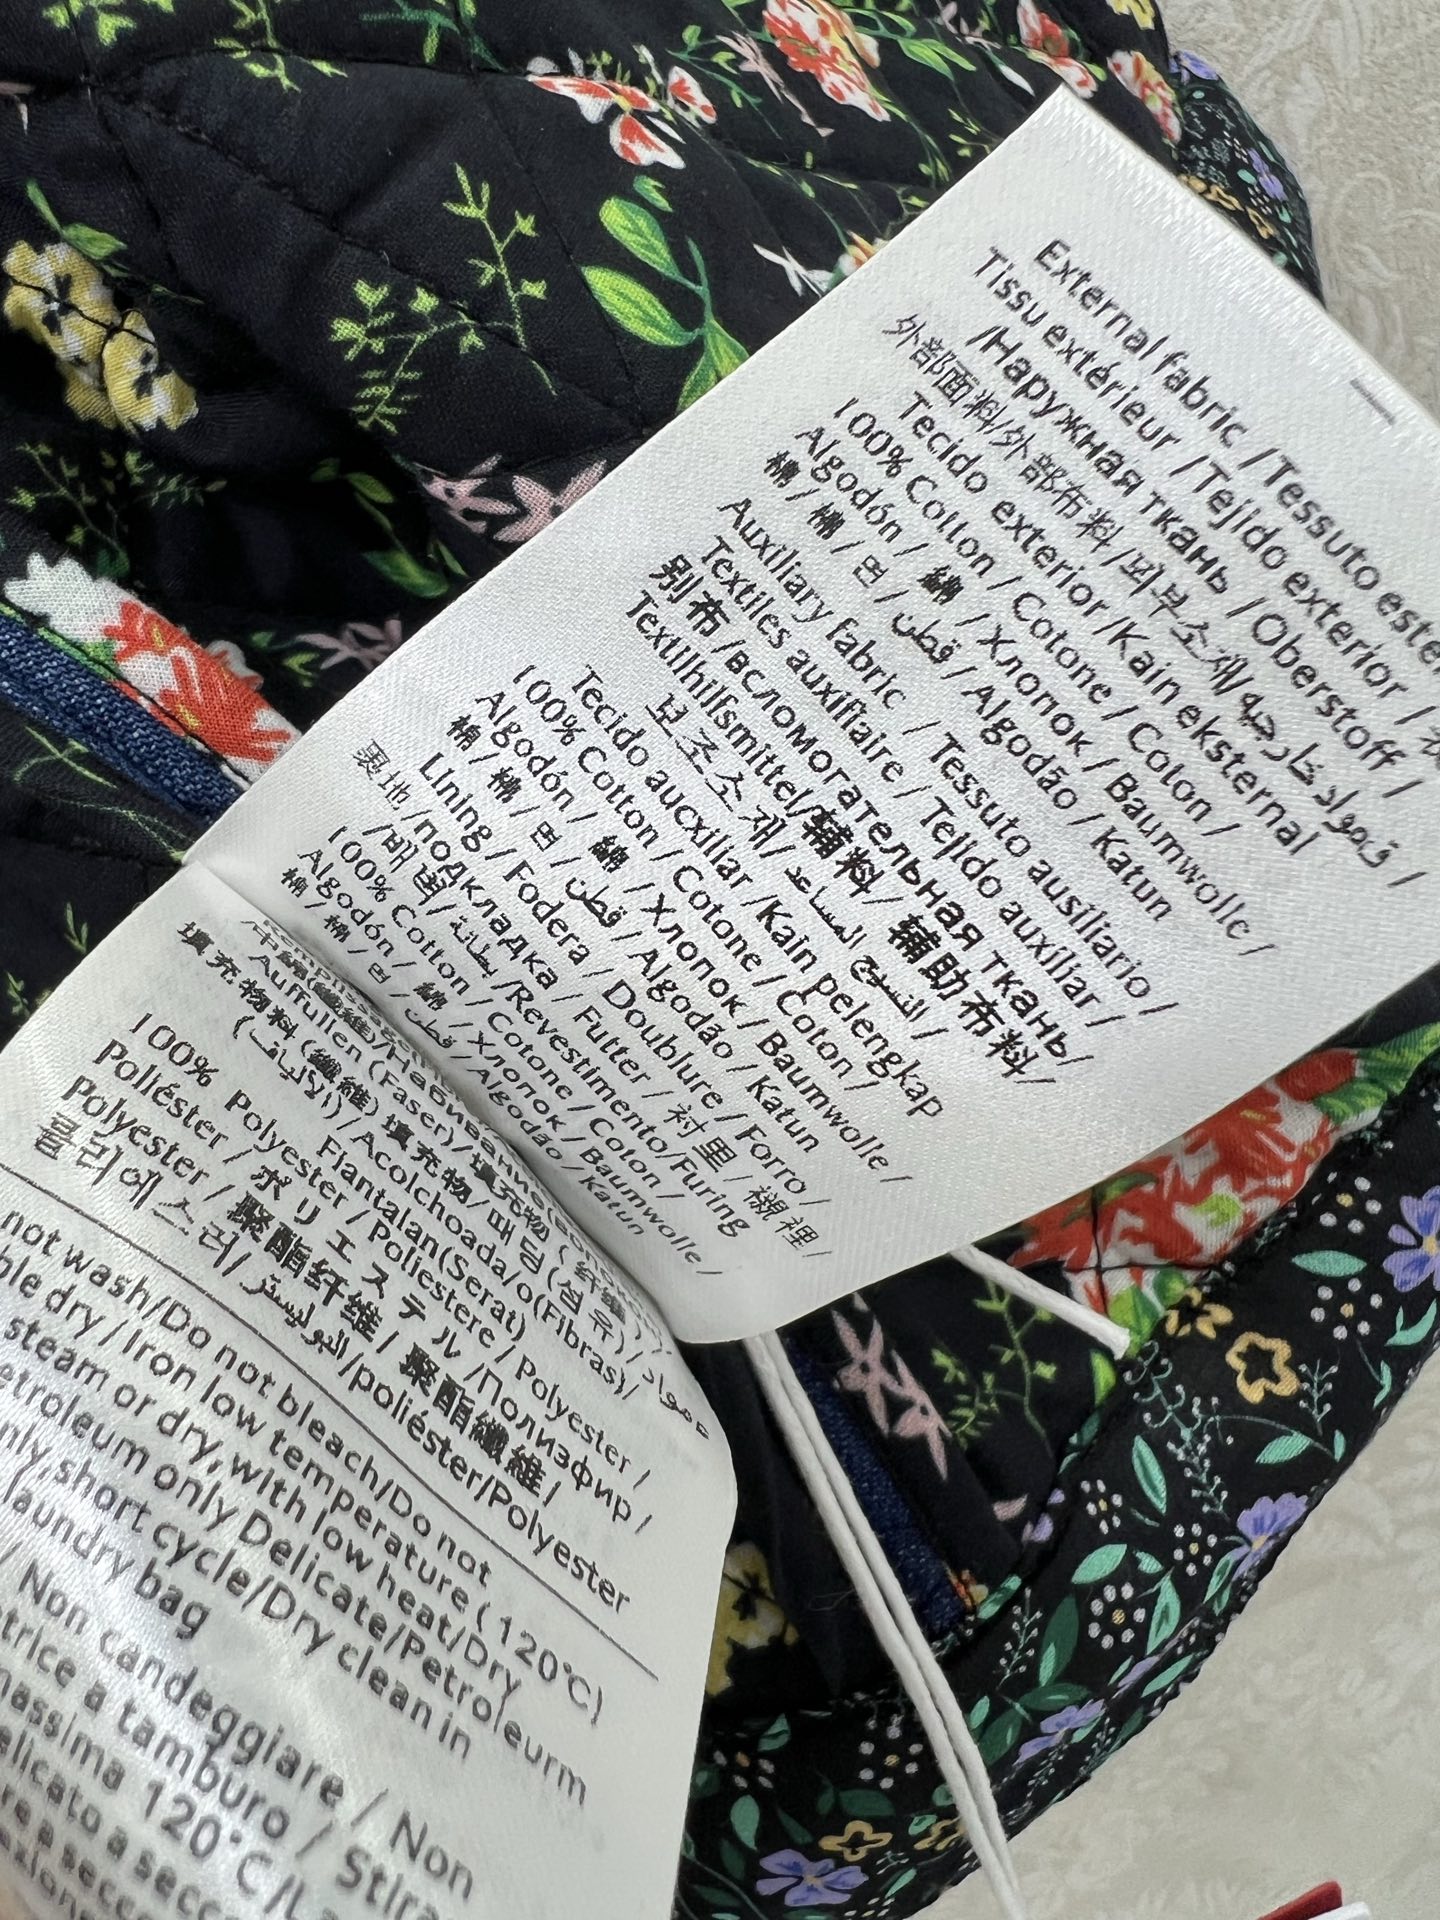 External fabric /Tessuto
Tissu extérieur /Tejido exterior /
/Наружная ткань /Oberstoff /
外部面料/外部布料/외부소재/قمواد خارجيه /
Tecido exterior /Kain eksternal
100% Cotton / Cotone / Coton /
Algodón / 綿 / Хлопок / Baumwolle /
棉 / 棉 / 면 / قطن / Algodão / Katun
Auxiliary fabric / Tessuto ausiliario /
Textiles auxiflaire / Tejido auxiliar /
别布 /всломогательная ткань/
Textilhilfsmittel/辅料/ 辅助布料/
보조소재/ النسيج المساعد /
Tecido aucxiliar /Kain pelengkap
100% Cotton / Cotone / Coton /
Algodón / 綿 / Хлопок / Baumwolle /
棉 / 棉 / 면 / قطن / Algodão / Katun
Lining / Fodera / Doublure / Forro /
裏地 /подкладка / Futter / 衬里 / 襯裡 /
/배굼/ بطانة /Revestimento/Furing
100% Cotton / Cotone / Coton /
Algodón / 綿 / Хлопок / Baumwolle /
棉 / 棉 / 면 / قطن / Algodão / Katun
Auffullen (Faser)/ 填充物 ( 纤维 ) /
填充物料 (纖維) 填充物/패딩(섬유) /
(الألياف) /Acolchoada/o(Fibras)/
Flantalan(Serat)
100% Polyester / Poliestere / Polyester /
Poliéster / ポリエステル /Полизфир /
Polyester / 聚酯纤维 / 聚酯纖維/
폴리에스러/ البوليستر /poliéster/Polyester
not wash/Do not bleach/Do not
ble dry / Iron low temperature ( 120°C)
steam or dry, with low heat/Dry
etroleum only Delicate/Petroleurm
nly, short cycle/Dry clean in
laundry bag
/ Non candeggiare / Non
trice a tamburo / Stira
massima 120° C /L
elicato a secc